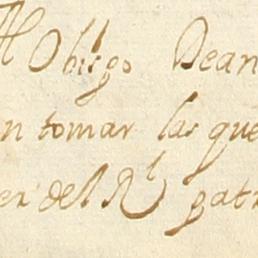 Al Obispo Dean
n tomar las que
er del Rl patr